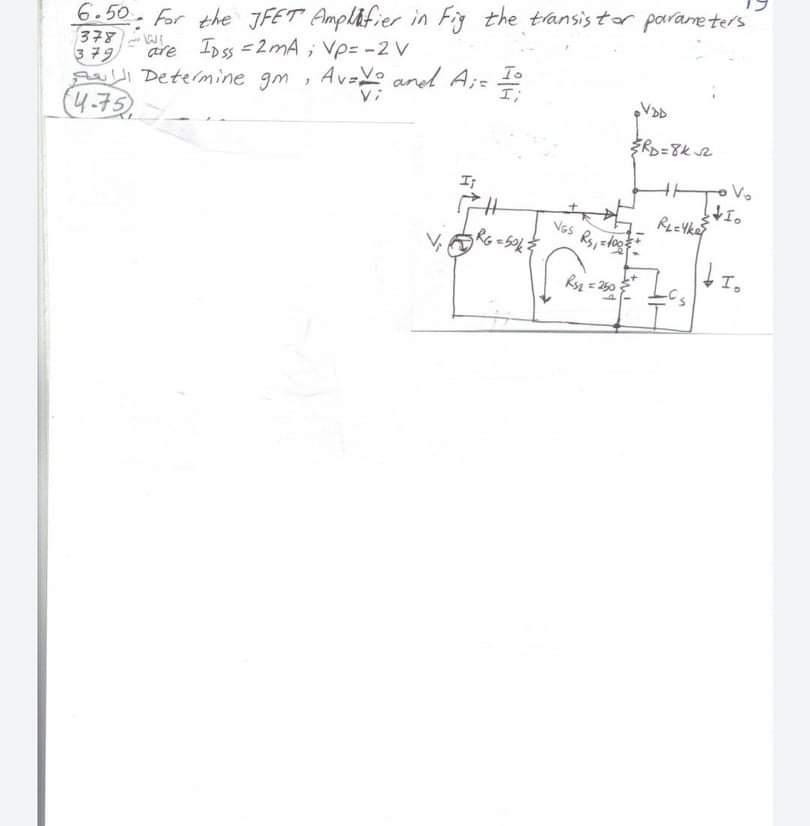 19
6.50: For the JFET Amplifier in Fig the transistor parameters
378
379 are IDSS = 2mA ; VP = -2V
Determine gm , Av = Vo/Vi and Ai = Io/Ii
4.75
VDD
RD = 8kΩ
Vo
Ii
Io
RL = 4kΩ
Vi
RG = 50k
+
VGS
RS1 = 100Ω
-
+
-
Io
RS2 = 250Ω
+
-
Cs